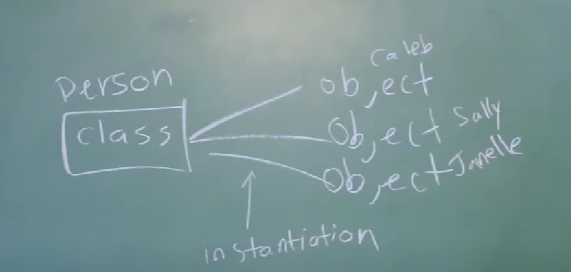 Person
class
Caleb
object
object Sally
object Janelle
instantiation